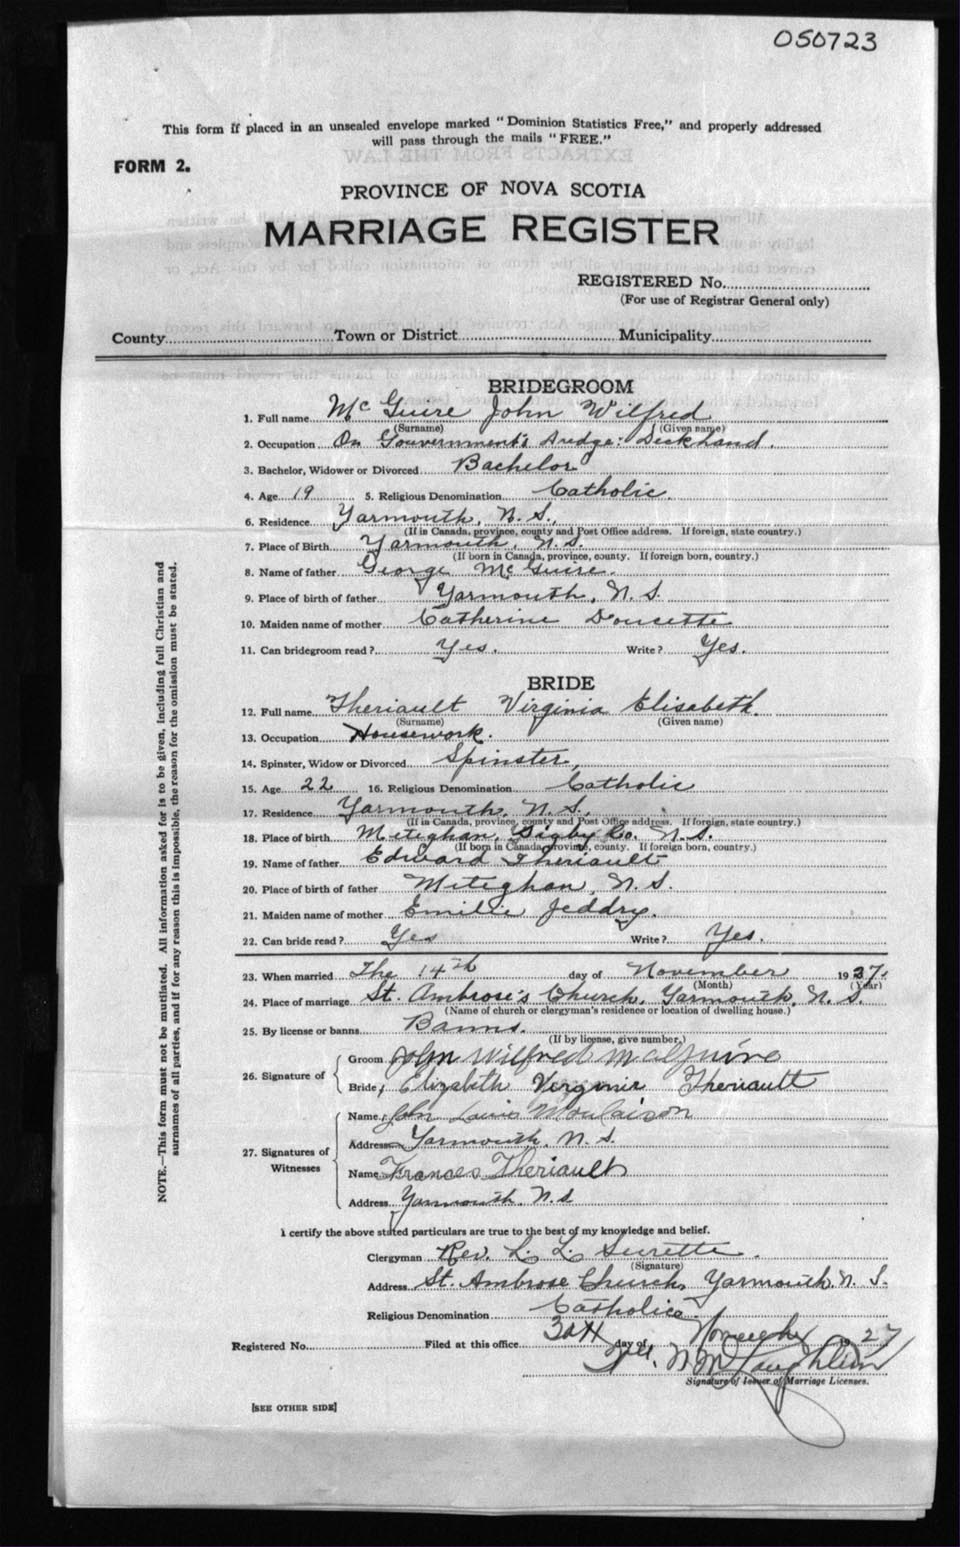 050723
This form if placed in an unsealed envelope marked "Dominion Statistics Free," and properly addressed
will pass through the mails "FREE."
FORM 2.
PROVINCE OF NOVA SCOTIA
MARRIAGE REGISTER
REGISTERED No.
(For use of Registrar General only)
County Town or District Municipality
BRIDEGROOM
1. Full name Mc Guire John Wilfred
(Surname) (Given name)
2. Occupation On Gouvernment's Dredge: Deckhand.
3. Bachelor, Widower or Divorced Bachelor
4. Age 19 5. Religious Denomination Catholic.
6. Residence Yarmouth, N. S.,
(If in Canada, province, county and Post Office address. If foreign, state country.)
7. Place of Birth Yarmouth, N. S.
(If born in Canada, province, county. If foreign born, country.)
8. Name of father George McGuire.
9. Place of birth of father Yarmouth, N. S.
10. Maiden name of mother Catherine Doucette
11. Can bridegroom read? Yes. Write? Yes.
BRIDE
12. Full name Theriault Virginia Elisabeth.
(Surname) (Given name)
13. Occupation Housework.
14. Spinster, Widow or Divorced Spinster,
15. Age 22 16. Religious Denomination Catholic
17. Residence Yarmouth, N. S.,
(If in Canada, province, county and Post Office address. If foreign, state country.)
18. Place of birth Meteghan, Digby Co. N. S.
(If born in Canada, province, county. If foreign born, country.)
19. Name of father Edward Theriault
20. Place of birth of father Meteghan, N. S.
21. Maiden name of mother Emilie Jeddry.
22. Can bride read? Yes Write? Yes.
23. When married The 14th day of November 1927.
(Month) (Year)
24. Place of marriage St. Ambrose's Church, Yarmouth, N. S.
(Name of church or clergyman's residence or location of dwelling house.)
25. By license or banns Banns.
(If by license, give number.)
26. Signature of
Groom John Wilfred McGuire
Bride Elizabeth Verginir Theriault
27. Signatures of Witnesses
Name John Louis Moulaison
Address Yarmouth, N. S.
Name Frances Theriault
Address Yarmouth, N. S
I certify the above stated particulars are true to the best of my knowledge and belief.
Clergyman Rev. L. L. Surette.
(Signature)
Address St. Ambrose Church, Yarmouth, N. S.
Religious Denomination Catholic.
Registered No. Filed at this office day of 1927
Signature of Issuer of Marriage Licenses.
[SEE OTHER SIDE]
NOTE.—This form must not be mutilated. All information asked for is to be given, including full Christian and
surnames of all parties, and if for any reason this is impossible, the reason for the omission must be stated.